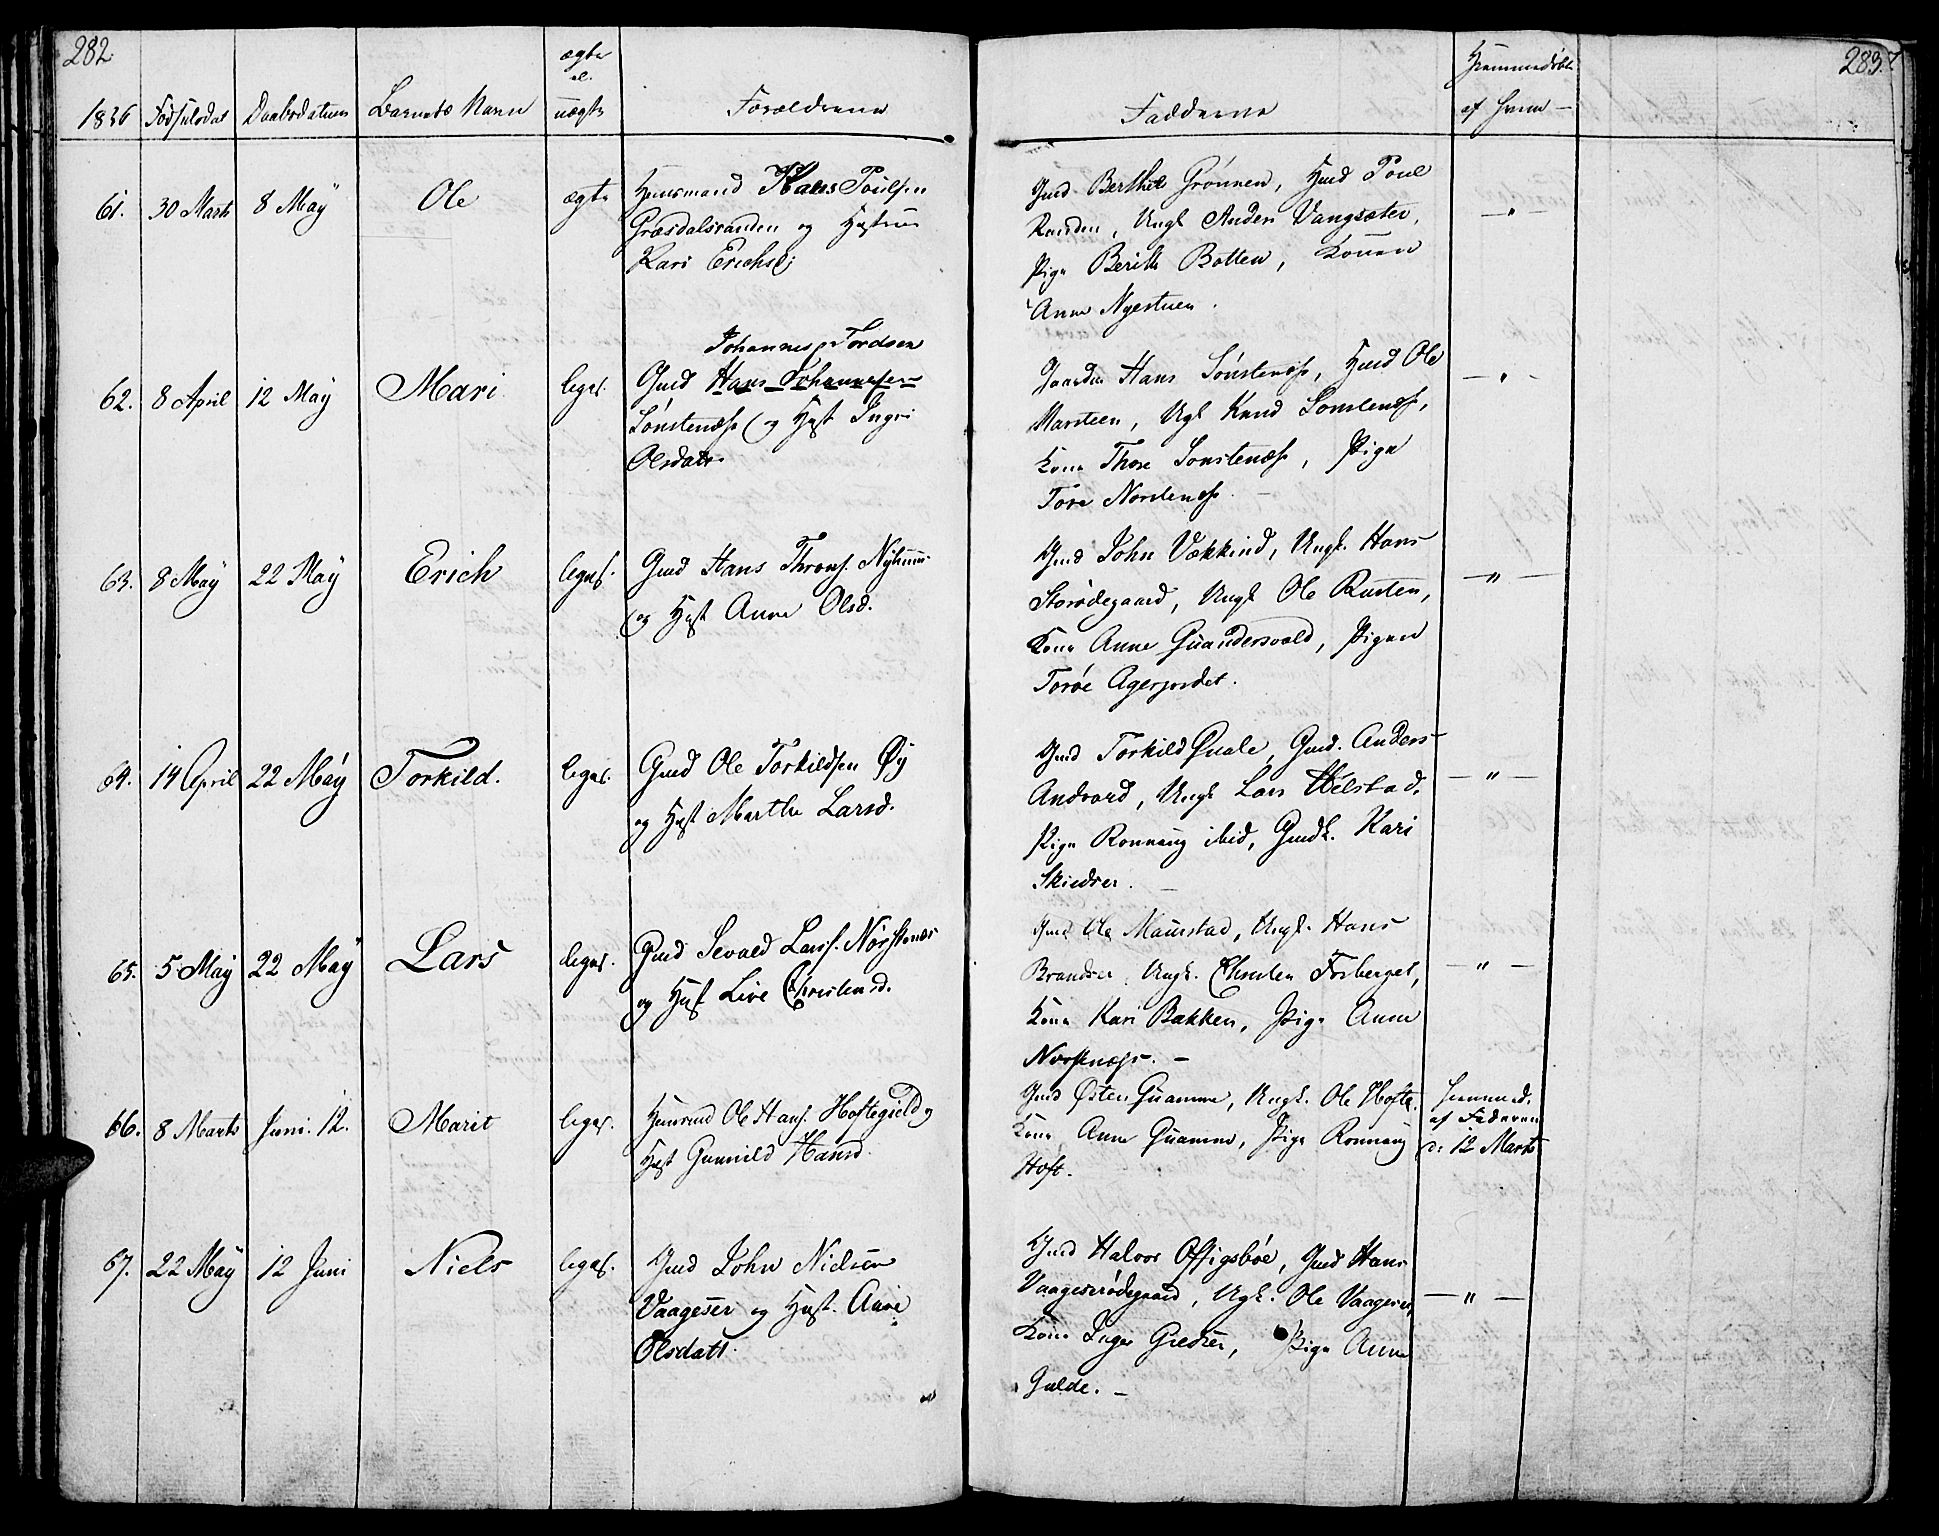 282.
283.
ægte
el.
uægte
1836 Fødselsdat Daabsdatum Barnets Navn Forældrene
Fadderne
Hjemmedøbt
af hvem
61. 30 Marts 8 May Ole ægte Huusmand Hans Poulsen
Græsdalsranden og Hustrue
Kari Erichsd:
Gmd Berthel Grønnen, Hmd Poul
Randen, Ungk Anders Vangsæter,
Pige Berith Botten, Konen
Anne Nyestuen.
— " —
Johannes Tordsen
62. 8 April 12 May Mari legal. Gmd Hans Johannesen
Sønstenæss og Hust Ingri
Olsdatr.
Gaardm Hans Sønstenæss, Hmd Ole
Marsteen, Ugk Knud Sønstenæss,
Kone Thore Sønstenæss, Pige
Tore Norstenæss. —
— " —
63. 8 May 22 May Erich legal. Gmd Hans Thronss. Nyhuus
og Hust Anne Olsd.
Gmd John Vækkind, Ungk. Hans
Storødegaard, Ungk Ole Rusten,
Kone Anne Quandersvold, Pigen
Torøe Agerjordet.
— " —
64. 14 April 22 May Torkild. legal. Gmd Ole Torkildsen Øy
og Hust Marthe Larsd.
Gmd Torkild Quale, Gmd. Anders
Andvord, Ungk Lars Helstad,
Pige Rønnaug ibid, Gmdk. Kari
Skiedser. —
— " —
65. 5 May 22 May Lars legal. Gmd Sevald Larss. Nørstenæs
og Hust Live Christensd.
Gmd Ole Maurstad, Ungk. Hans
Brandser, Ungk. Christen Forberget,
Kone Kari Bakken, Pige Anne
Norstenæss. —
— " —
66. 8 Marts Juni 12. Marit legal. Huusmd Ole Hanss. Hoftegield og
Hust Gunnild Hansd.
Gmd Østen Quamme, Ungk. Ole Hofte,
Kone Anne Quamme, Pige Rønnaug
Hoft.
hjemmed.
af Faderen
d: 12 Marts
67. 22 May 12 Juni Niels legal. Gmd John Nielsen
Vaageser og Hust. Anne
Olsdatt.
Gmd Halvor Offigsbøe, Gmd Hans
Vaageserødegaard, Ugk. Ole Vaageser,
Kone Inger Gredser, Pige Anne
Gulde. —
— " —